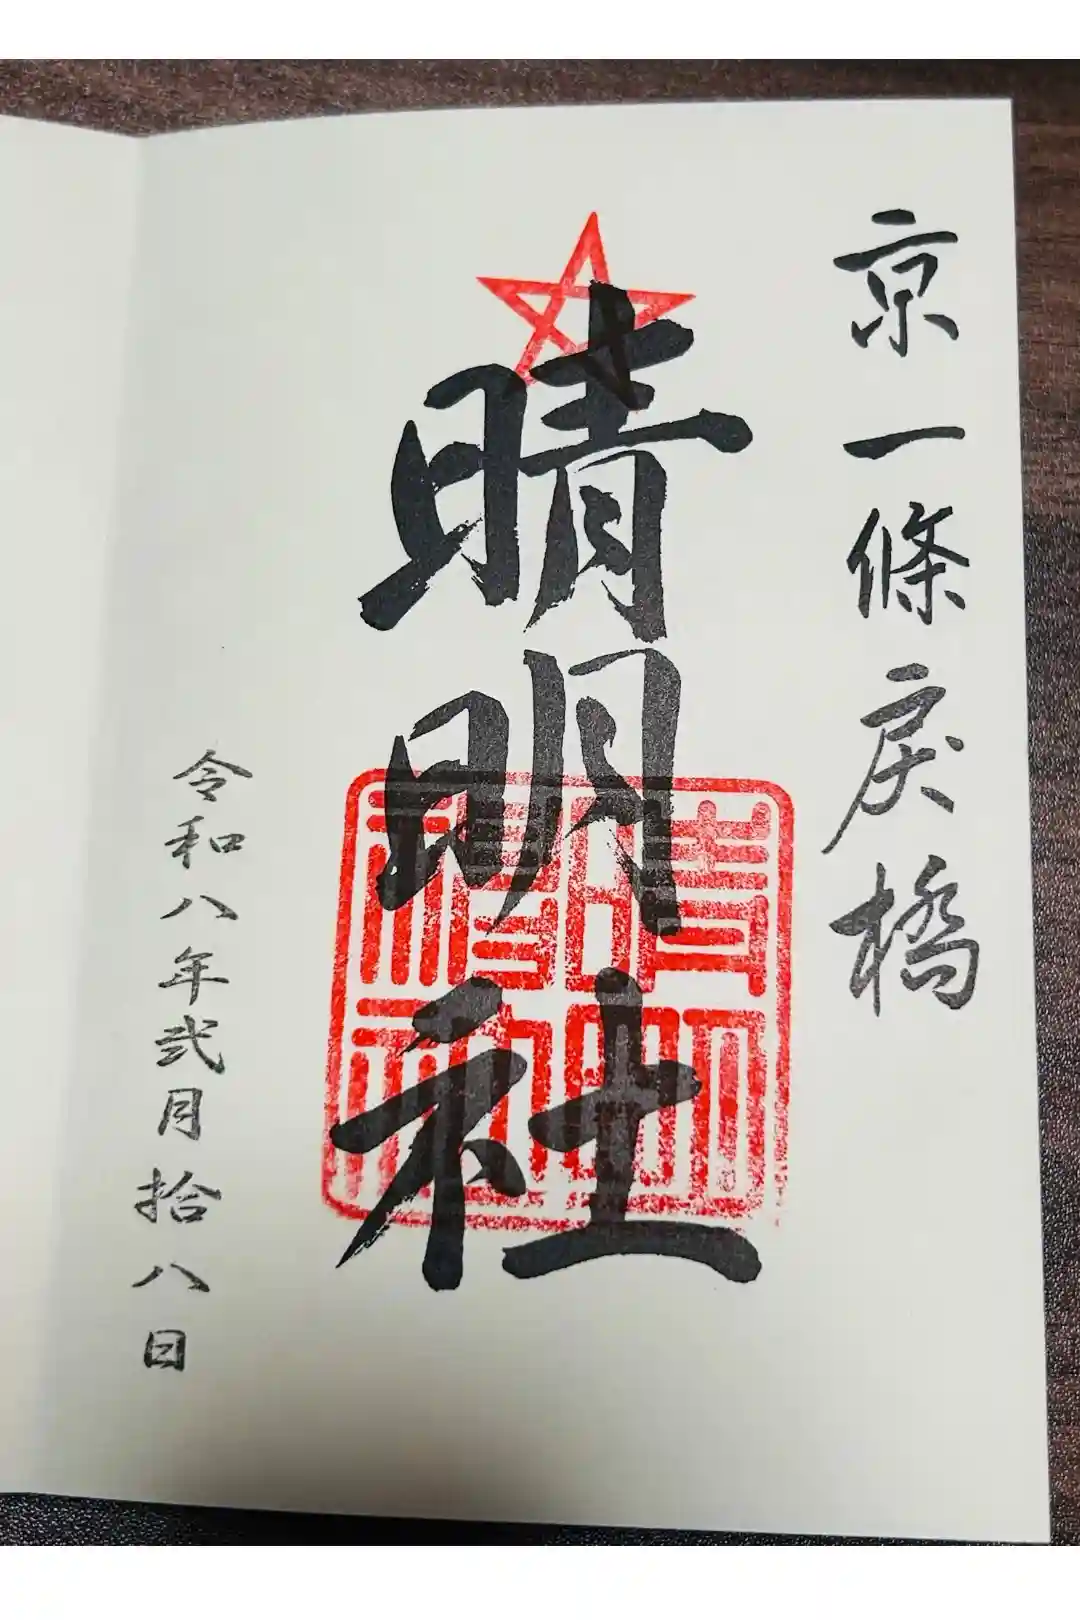 京一條戻橋
晴明社
晴明神社
令和八年弐月拾八日